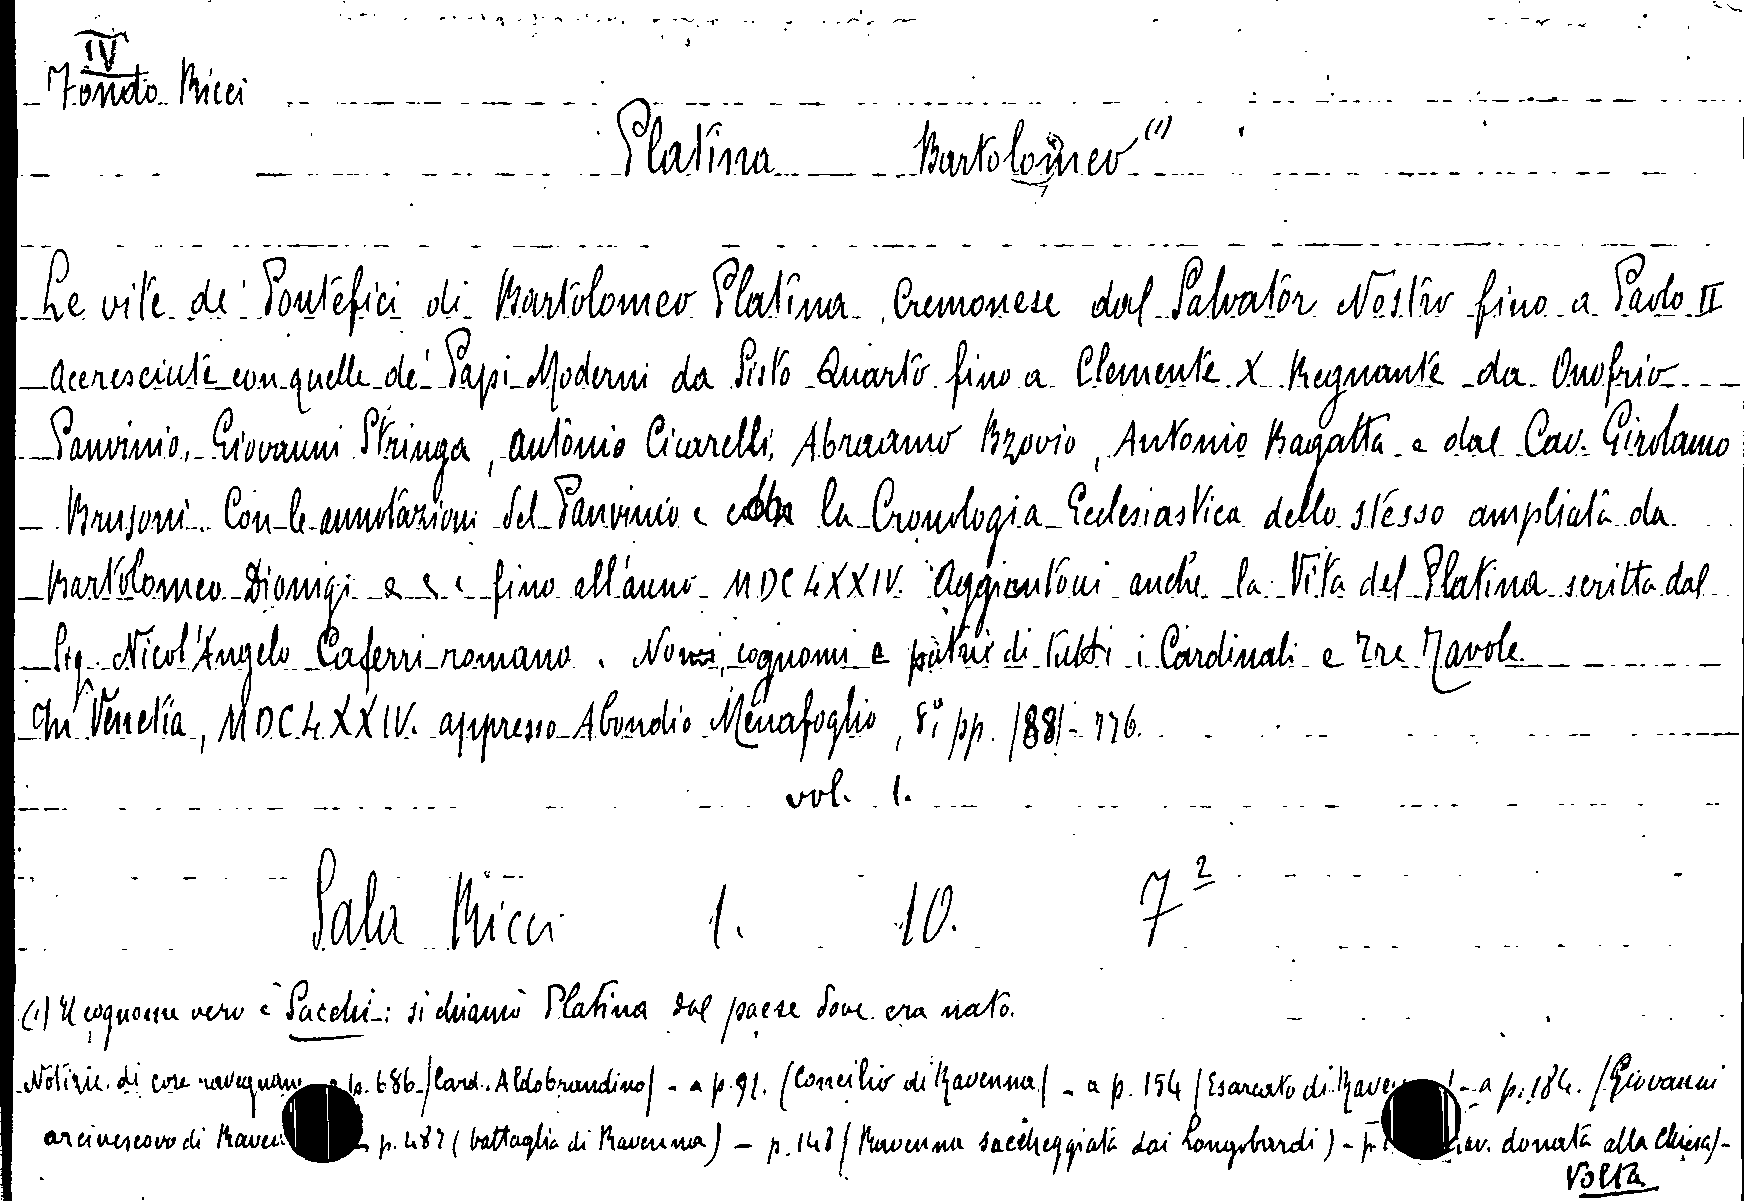 IV
Fondo Ricci
Platina Bartolomeo (1)
Le vite de' Pontefici di Bartolomeo Platina Cremonese dal Salvator Nostro fino a Paolo II
accresciute con quelle de' Papi Moderni da Sisto Quarto fino a Clemente X Regnante da Onofrio
Panvinio, Giovanni Stringa, Antonio Cicarelli, Abraamo Bzovio, Antonio Bagatta e dal Cav. Girolamo
Brusoni. Con le annotazioni del Panvinio e con la Cronologia Ecclesiastica dello stesso ampliata da
Bartolomeo Dionigi e fino all'anno MDCLXXIV. Aggiontovi anche la Vita del Platina scritta dal
Sig. Nicol'Angelo Caferri romano. Nomi, cognomi e patrie di tutti i Cardinali e Tre Tavole
In Venetia, MDCLXXIV. appresso Abondio Menafoglio, 8º, pp. /88/-776.
vol. 1.
Sala Ricci 1. 10. 7²
(1) Il cognome vero è Sacchi: si chiamò Platina dal paese dove era nato.
Notizie di cose ravegnane a p. 686 /Card. Aldobrandino/ - a p. 91. /Concilio di Ravenna/ - a p. 154 /Esarcato di / - a p. 184. /Giovanni
arcivescovo di p. 487 (battaglia di Ravenna) - p. 148 /Ravenna saccheggiata dai Longobardi) - donata alla Chiesa/ -
Volta